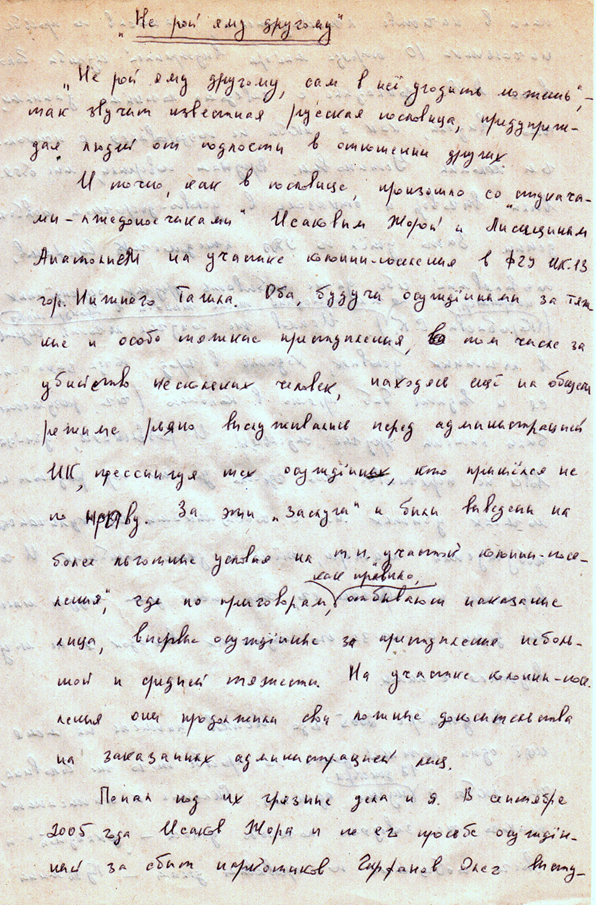 „Не рой яму другому"
„Не рой яму другому, сам в неё угодить можешь", –
так звучит известная русская пословица, предупреж-
дая людей от подлости в отношении других.
И точно, как в пословице, произошло со „стукача-
ми – лжедоносчиками" Исаковым Жорой и Лисициным
Анатолием на участке колонии-поселения в ФГУ ИК-13
гор. Нижнего Тагила. Оба, будучи осуждёнными за тяж-
кие и особо тяжкие преступления, в том числе за
убийство нескольких человек, находясь ещё на общем
режиме рьяно выслуживались перед администрацией
ИК, прессингуя тех осуждённых, кто пришёлся не
по нраву. За эти „заслуги" и были выведены на
более льготные условия на т.н. „участок колонии-посе-
ления", где по приговорам, как правило, отбывают наказание
лица, впервые осуждённые за преступления неболь-
шой и средней тяжести. На участке колонии-посе-
ления они продолжили свои ложные доносительства
на заказанных администрацией лиц.
Попал под их грязные дела и я. В сентябре
2005 года Исаков Жора и по его просьбе осуждён-
ный за сбыт наркотиков Гарфанов Олег высту-